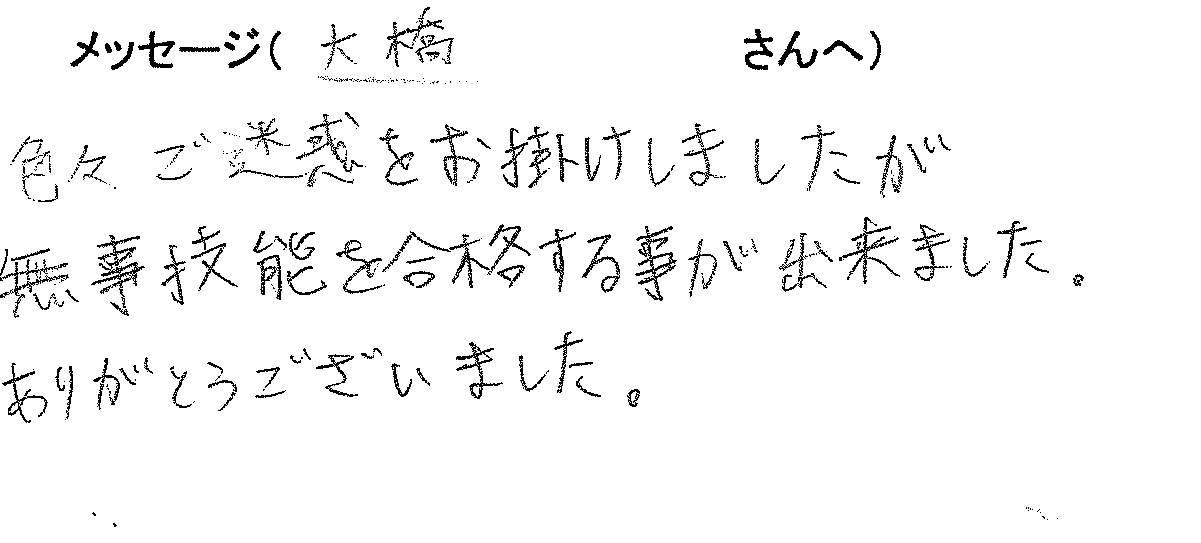 メッセージ( 大橋 さんへ)
色々ご迷惑をお掛けしましたが
無事技能を合格する事が出来ました。
ありがとうございました。